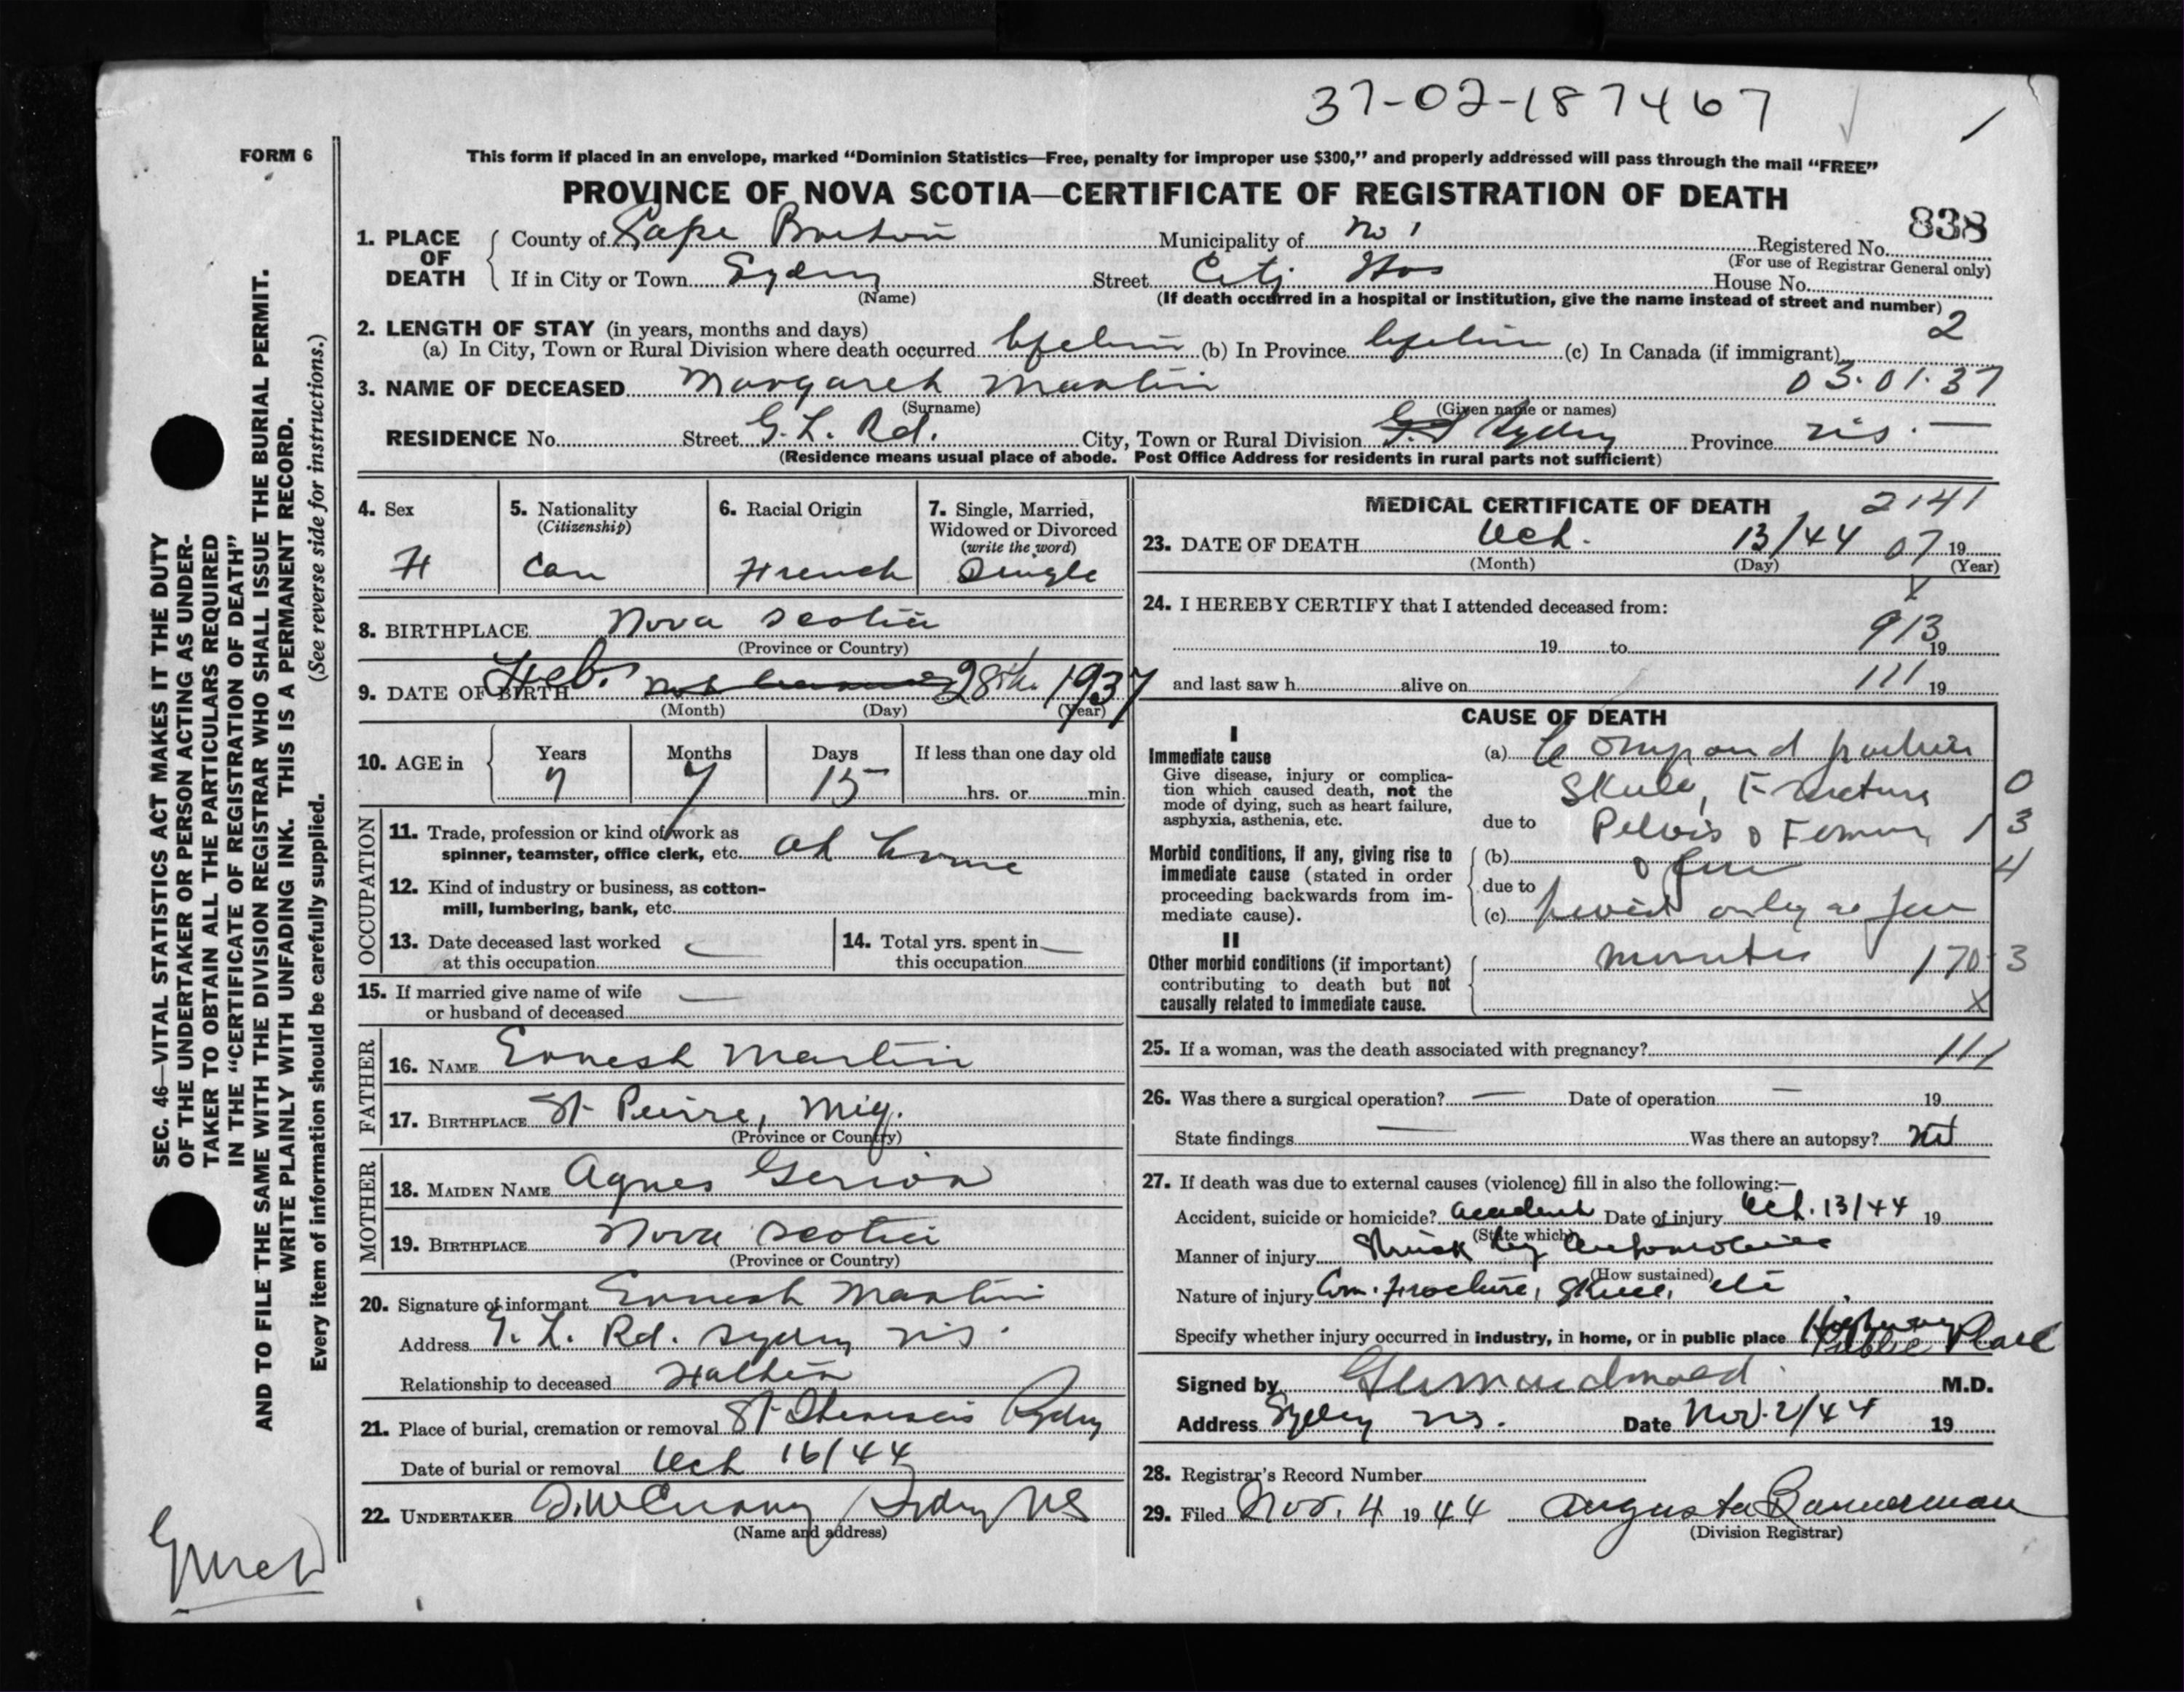 37-02-187467
1
FORM 6
This form if placed in an envelope, marked “Dominion Statistics—Free, penalty for improper use $300,” and properly addressed will pass through the mail “FREE”
PROVINCE OF NOVA SCOTIA—CERTIFICATE OF REGISTRATION OF DEATH
838
1. PLACE OF DEATH
County of Cape Breton Municipality of No 1 Registered No.
(For use of Registrar General only)
If in City or Town Sydney Street City Hos House No.
(Name) (If death occurred in a hospital or institution, give the name instead of street and number)
2
2. LENGTH OF STAY (in years, months and days)
(a) In City, Town or Rural Division where death occurred Lifetime (b) In Province Lifetime (c) In Canada (if immigrant)
3. NAME OF DECEASED Margaret Martin 03.01.37
(Surname) (Given name or names)
RESIDENCE No. Street G. L. Rd. City, Town or Rural Division Sydney Province N.S.
(Residence means usual place of abode. Post Office Address for residents in rural parts not sufficient)
4. Sex 5. Nationality 6. Racial Origin 7. Single, Married,
(Citizenship) Widowed or Divorced
(write the word)
F Can French Single
8. BIRTHPLACE Nova Scotia
(Province or Country)
9. DATE OF BIRTH Feb. 28th. 1937
(Month) (Day) (Year)
10. AGE in Years Months Days If less than one day old
7 7 15 hrs. or min.
OCCUPATION
11. Trade, profession or kind of work as
spinner, teamster, office clerk, etc. at home
12. Kind of industry or business, as cotton-
mill, lumbering, bank, etc.
13. Date deceased last worked
at this occupation
14. Total yrs. spent in
this occupation
15. If married give name of wife
or husband of deceased
FATHER
16. NAME Ernest Martin
17. BIRTHPLACE St Peirre, Miq.
(Province or Country)
MOTHER
18. MAIDEN NAME Agnes
19. BIRTHPLACE Nova Scotia
(Province or Country)
20. Signature of informant Ernest Martin
Address G. L. Rd. Sydney N.S.
Relationship to deceased Father
21. Place of burial, cremation or removal St Sydney
Date of burial or removal Oct 16/44
22. UNDERTAKER Sydney NS
(Name and address)
MEDICAL CERTIFICATE OF DEATH 2141
23. DATE OF DEATH Oct. 13/44 07 19
(Month) (Day) (Year)
X
24. I HEREBY CERTIFY that I attended deceased from:
913
19 to 19
and last saw h alive on 111 19
CAUSE OF DEATH
I
Immediate cause
Give disease, injury or complica-
tion which caused death, not the
mode of dying, such as heart failure,
asphyxia, asthenia, etc.
(a) Compound fracture
Skull, Fracture 0
due to Pelvis & Femur 1 3
Morbid conditions, if any, giving rise to
immediate cause (stated in order
proceeding backwards from im-
mediate cause).
(b) 4
due to
(c) only a few
II
Other morbid conditions (if important)
contributing to death but not
causally related to immediate cause.
minutes 170-3
X
25. If a woman, was the death associated with pregnancy? 111
26. Was there a surgical operation? Date of operation 19
State findings Was there an autopsy?
27. If death was due to external causes (violence) fill in also the following:—
Accident, suicide or homicide? accident Date of injury Oct. 13/44 19
(State which)
Manner of injury Struck by Automobile
(How sustained)
Nature of injury Com. fracture, Skull, etc
Specify whether injury occurred in industry, in home, or in public place Highway Public Place
Signed by M.D.
Address Sydney N.S. Date Nov. 2/44 19
28. Registrar's Record Number
29. Filed Nov. 4 1944 Augusta Bannerman
(Division Registrar)
SEC. 46—VITAL STATISTICS ACT MAKES IT THE DUTY
OF THE UNDERTAKER OR PERSON ACTING AS UNDER-
TAKER TO OBTAIN ALL THE PARTICULARS REQUIRED
IN THE “CERTIFICATE OF REGISTRATION OF DEATH”
AND TO FILE THE SAME WITH THE DIVISION REGISTRAR WHO SHALL ISSUE THE BURIAL PERMIT.
WRITE PLAINLY WITH UNFADING INK. THIS IS A PERMANENT RECORD.
Every item of information should be carefully supplied. (See reverse side for instructions.)